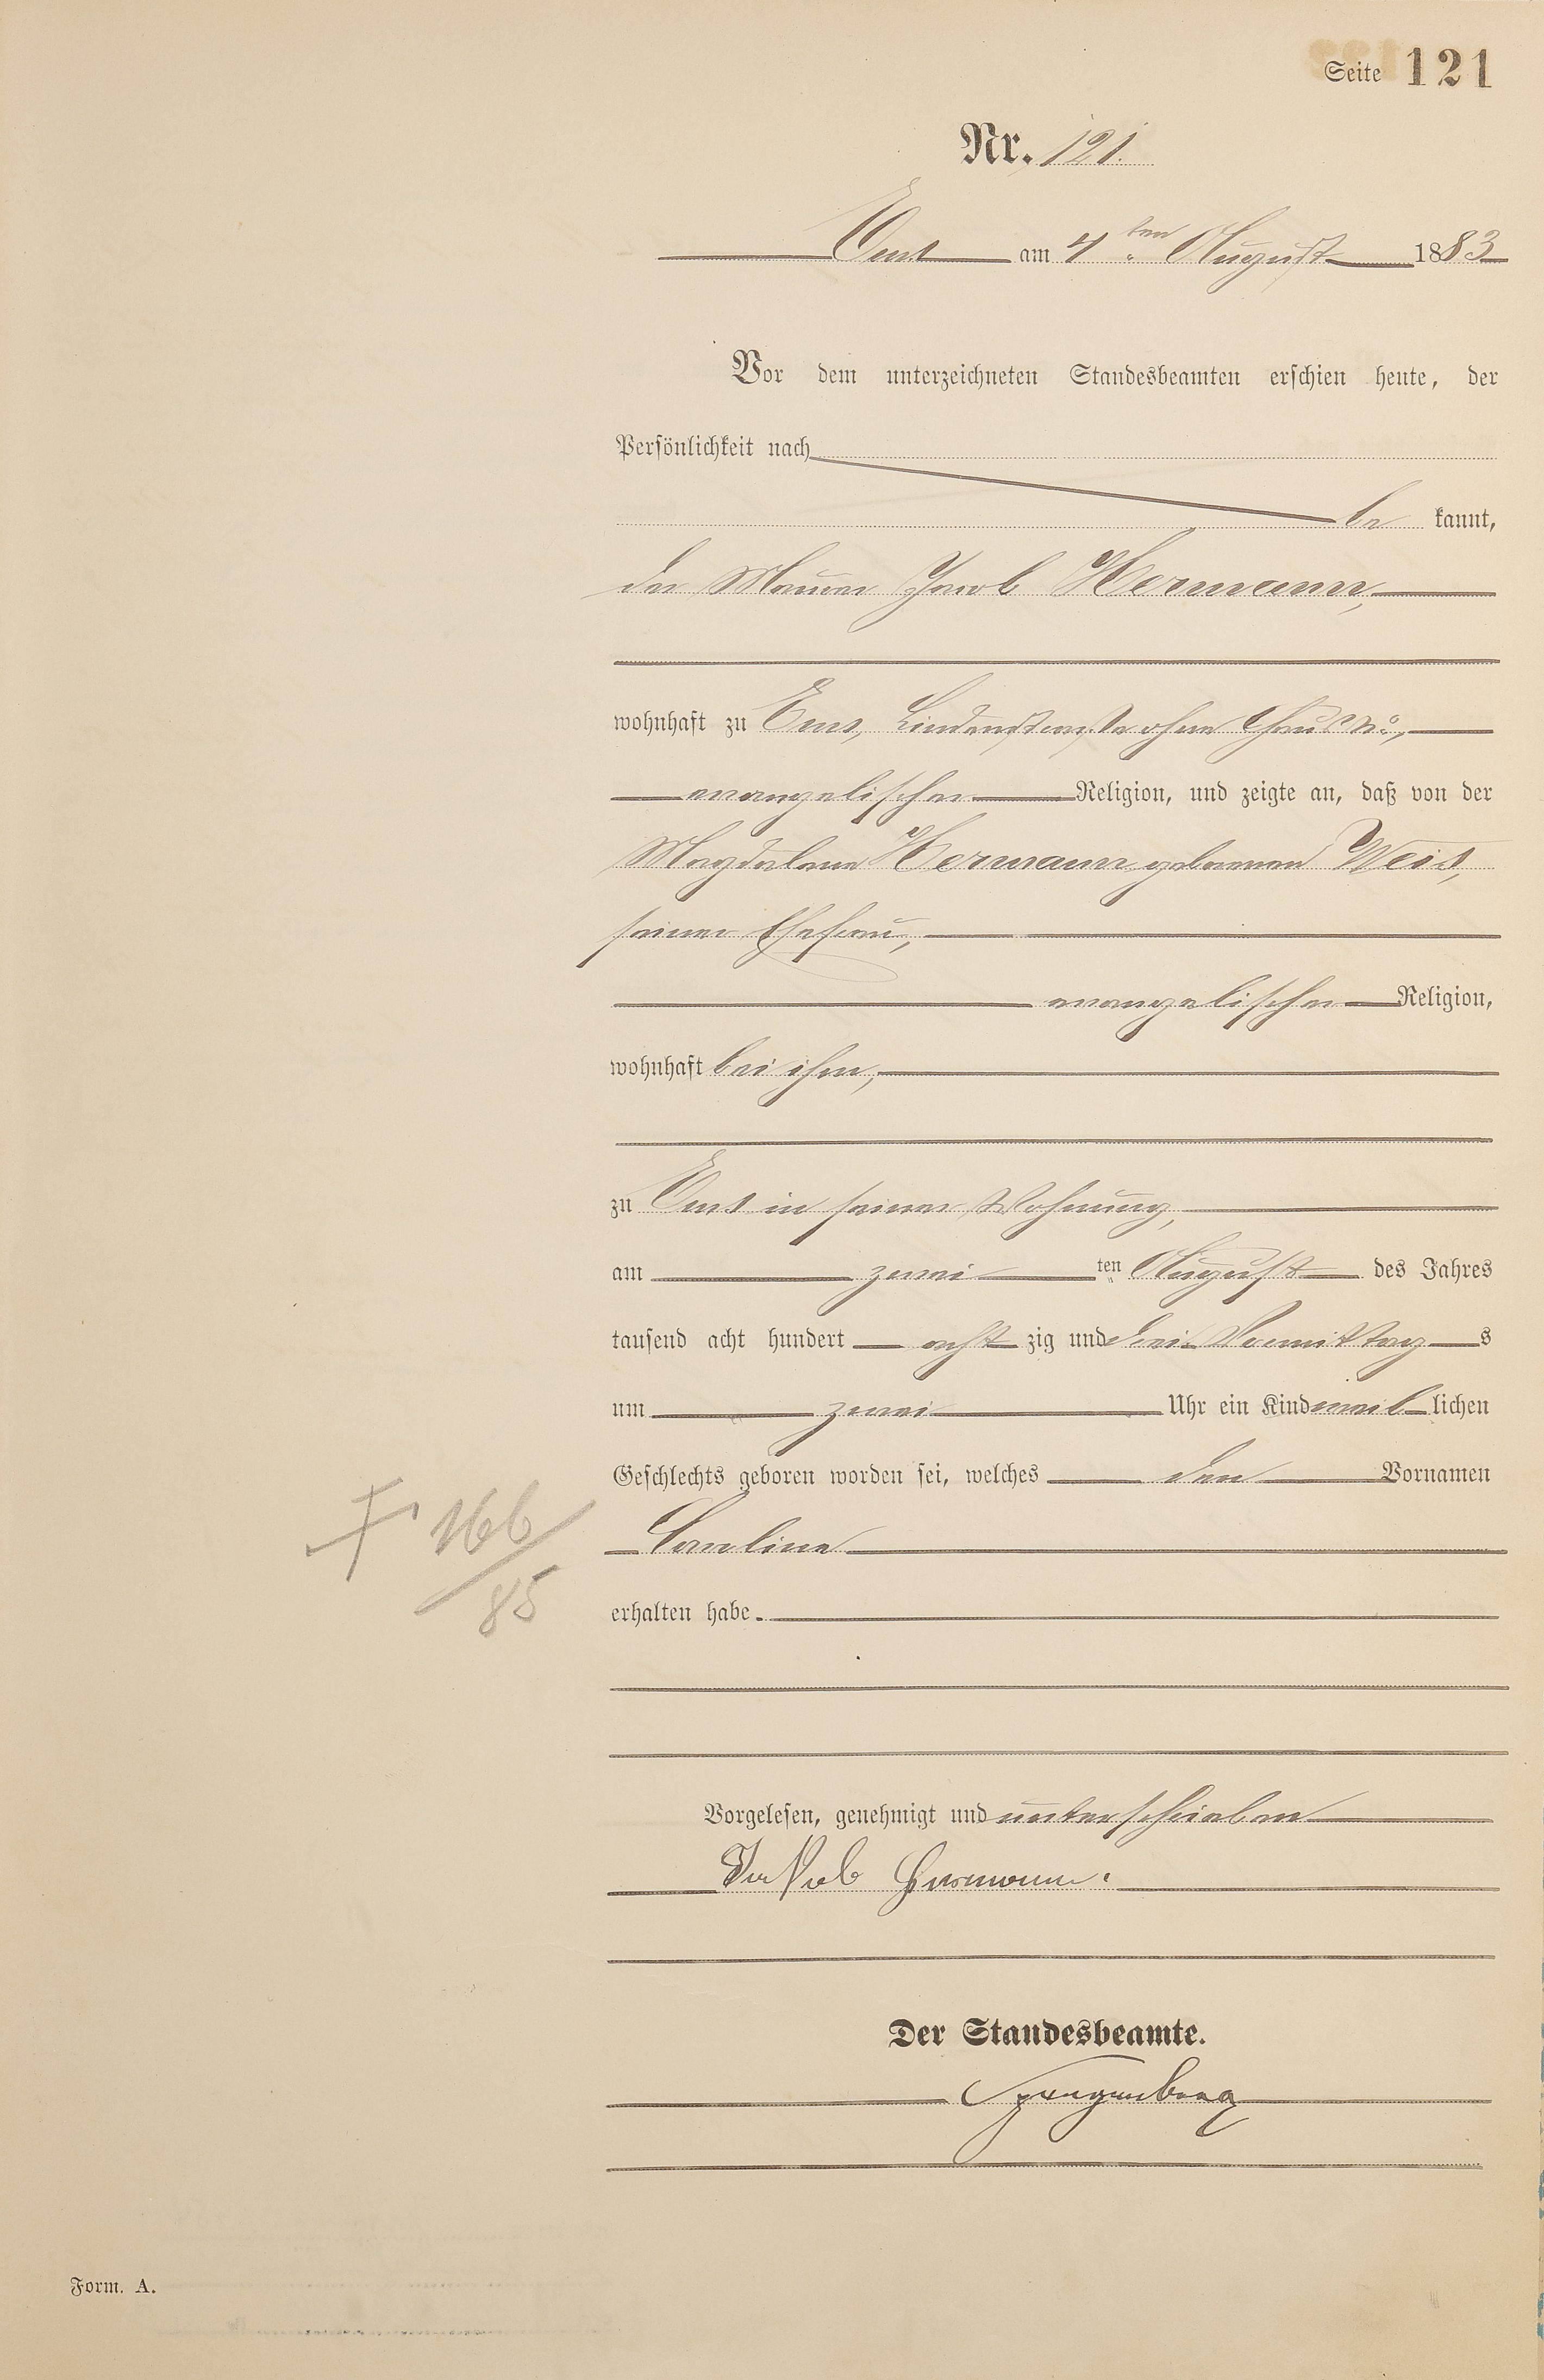 Seite 121
Nr. 121.
Ems am 4ten August 1883
Vor dem unterzeichneten Standesbeamten erschien heute, der
Persönlichkeit nach
be kannt,
der Maurer Jacob Hermann,
wohnhaft zu Ems, Lindenstraße ohne Haus No,
evangelischer Religion, und zeigte an, daß von der
Magdalena Hermann geborenen Weis,
seiner Ehefrau,
evangelischer Religion,
wohnhaft bei ihm,
zu Ems in seiner Wohnung,
am zwei ten August des Jahres
tausend acht hundert acht zig und drei Vormittag s
um zwei Uhr ein Kind weib lichen
Geschlechts geboren worden sei, welches den Vornamen
Caroline
† 166/85
erhalten habe.
Vorgelesen, genehmigt und unterschrieben
Jakob Hermann.
Der Standesbeamte.
Form. A.